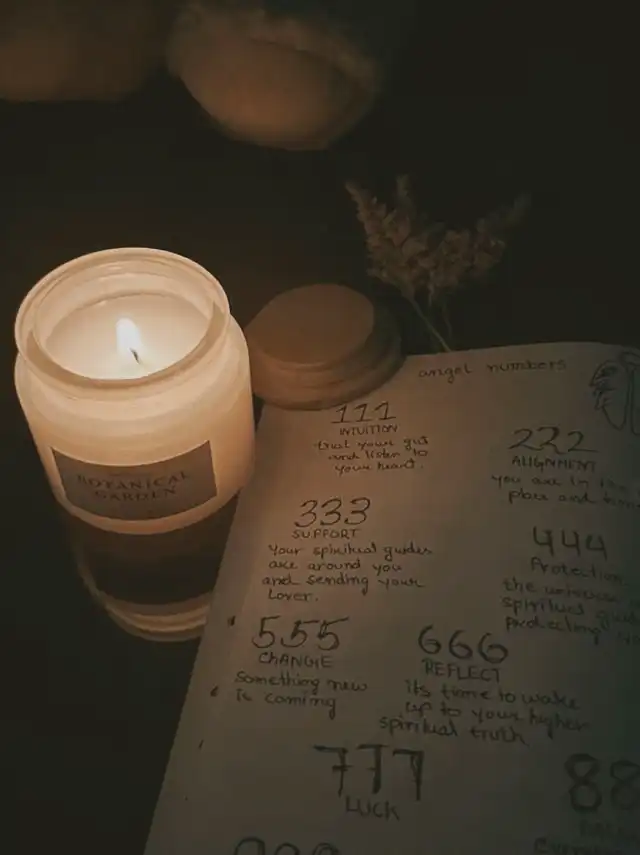 BOTANICAL
GARDEN
angel numbers
111
INTUITION
trust your gut
and listen to
your heart.
222
ALIGNMENT
you are in
place and
333
SUPPORT
Your spiritual guides
are around you
and sending your
Lover.
444
Protection
the universe
spiritual
protecting
555
CHANGE
Something new
is coming
666
REFLECT
its time to wake
up to your higher
spiritual truth
777
LUCK